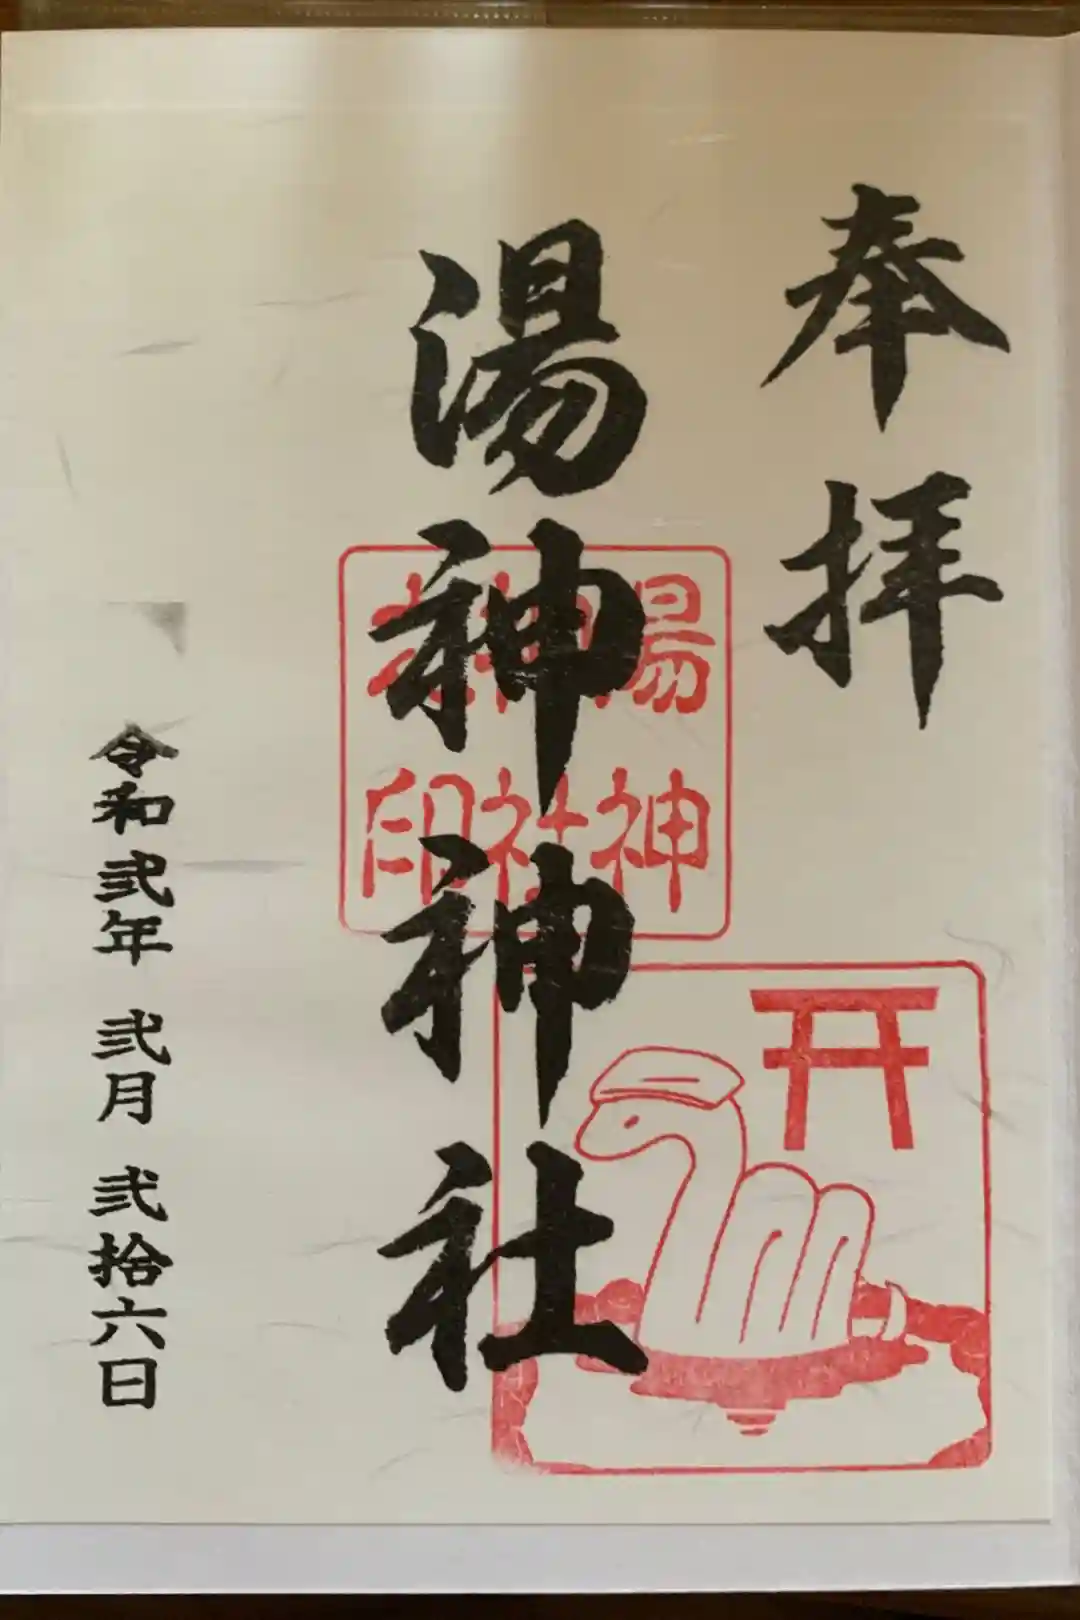 奉拝
湯神神社
湯神
神社
印
令和弐年 弐月 弐拾六日